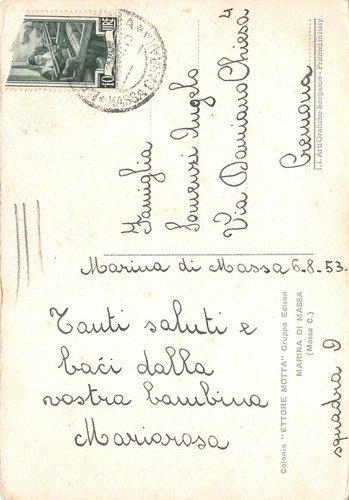 Marina di Massa 6-8-53.
Tanti saluti e
baci dalla
vostra bambina
Mariarosa
squadra 9
Famiglia
Somenzi Angelo
Via Damiano Chiesa 4
Cremona
Colonia "ETTORE MOTTA" Gruppo Edison
MARINA DI MASSA
(Massa C.)
I.I. Arti Grafiche Bergamo - Printed in Italy
10 LIRE
MASSA